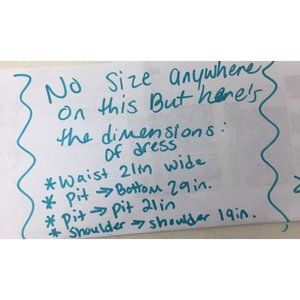 No Size anywhere
On this But here's
the dimensions:
of dress
* Waist 21in wide
* Pit → Bottom 29in.
* Pit → Pit 21in
* Shoulder → shoulder 19in.